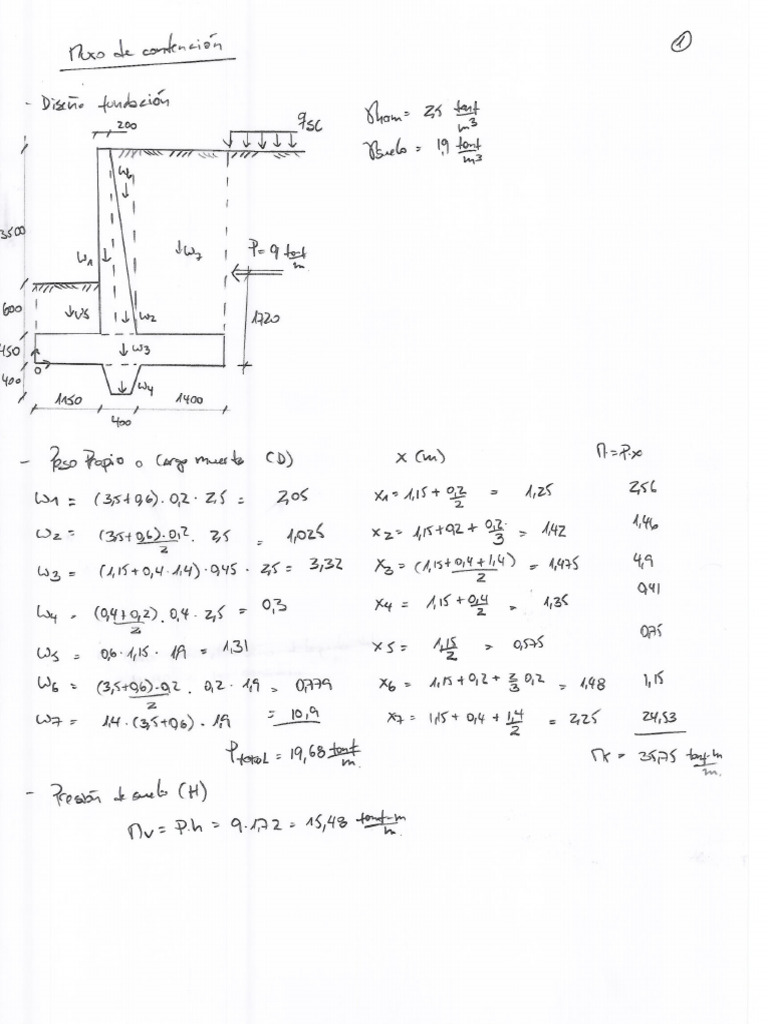 Muro de contención
1
- Diseño fundación
200
qsc
γhom = 2,5 tonf/m³
γsuelo = 1,9 tonf/m³
3500
W6
W1
W7
P = 9 tonf/m.
600
W5
W2
1720
450
W3
0
400
W4
1150
400
1400
- Peso Propio o Carga muerta (D) x (m) M = P.x
W1 = (3,5+0,6).0,2.2,5 = 2,05 x1 = 1,15 + 0,2/2 = 1,25 2,56
W2 = (3,5+0,6).0,2/2 . 2,5 = 1,025 x2 = 1,15+0,2+0,2/3 = 1,42 1,46
W3 = (1,15+0,4+1,4).0,45.2,5 = 3,32 x3 = (1,15+0,4+1,4)/2 = 1,475 4,9
W4 = (0,4+0,2)/2 . 0,4.2,5 = 0,3 x4 = 1,15+0,4/2 = 1,35 0,41
W5 = 0,6.1,15.1,9 = 1,31 x5 = 1,15/2 = 0,575 0,75
W6 = (3,5+0,6).0,2/2 . 0,2.1,9 = 0,779 x6 = 1,15+0,2+2/3 0,2 = 1,48 1,15
W7 = 1,4.(3,5+0,6).1,9 = 10,9 x7 = 1,15+0,4+1,4/2 = 2,25 24,53
Ptotal = 19,68 tonf/m. Mr = 35,75 tonf-m/m.
- Presión de suelo (H)
Mv = P.h = 9.1,72 = 15,48 tonf-m/m.